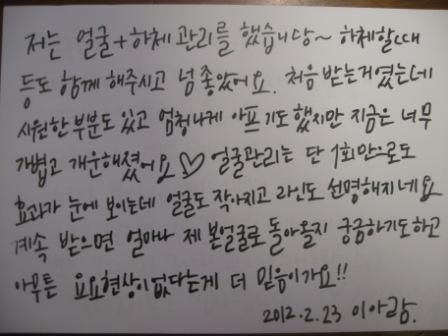 저는 얼굴+하체 관리를 했습니당~ 하체할때
등도 함께 해주시고 넘 좋았어요. 처음 받는거였는데
시원한 부분도 있고 엄청나게 아프기도 했지만 지금은 너무
개볍고 개운해졌어요♡ 얼굴관리는 단 1회만으로도
효과가 눈에 보이는데 얼굴도 작아지고 라인도 선명해지네요
계속 받으면 얼마나 제 본얼굴로 돌아올지 궁금하기도하고
아무튼 요요현상이없다는게 더 믿음이가요!!
2012.2.23 이아람.